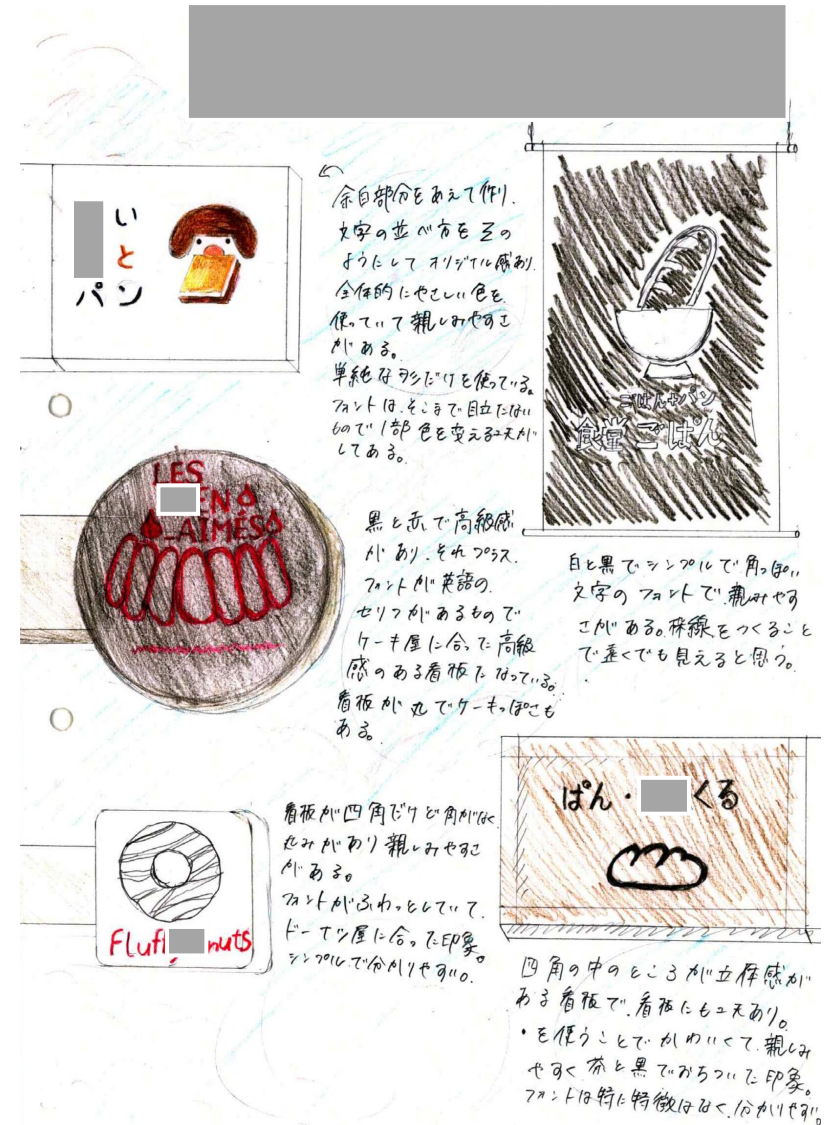 い
と
パン
余白部分をあえて作り、
文字の並べ方をその
ようにしてオリジナル感あり。
全体的にやさしい色を
使っていて親しみやすさ
がある。
単純な形だけを使っている。
フォントは、そこまで目立たない
もので1部色を変える工夫が
してある。
ごはん+パン
食堂ごぱん
LES
EN
_AIMÉS
黒と赤で高級感
があり、それプラス
フォントが英語の
セリフがあるもので
ケーキ屋に合った高級
感のある看板になっている。
看板が丸でケーキっぽさも
ある。
白と黒でシンプルで角っぽい
文字のフォントで、親しみやす
さがある。枠線をつくること
で遠くでも見えると思う。
Fluf
nuts
看板が四角だけど角がなく
丸みがあり親しみやすさ
がある。
フォントがふわっとしていて、
ドーナツ屋に合った印象。
シンプルで分かりやすい。
ぱん・
くる
四角の中のところが立体感が
ある看板で、看板にも工夫あり。
・を使うことでかわいくて、親しみ
やすく茶と黒でおちついた印象。
フォントは特に特徴はなく、分かりやすい。